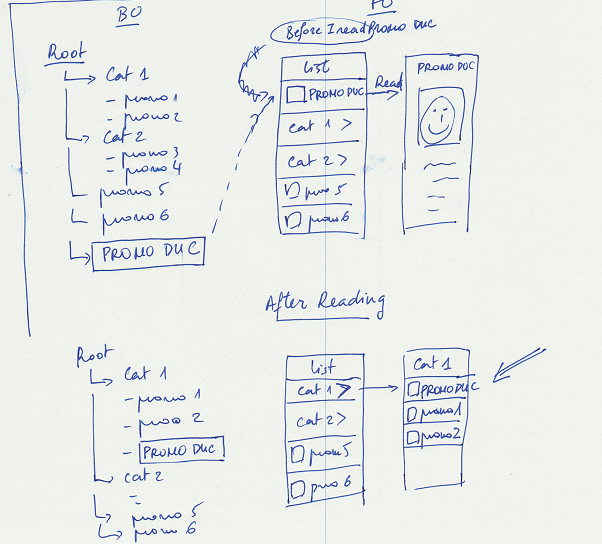 BO
FO
Before I read PROMO DUC
Root
Cat 1
- promo 1
- promo 2
Cat 2
- promo 3
- promo 4
promo 5
promo 6
PROMO DUC
List
PROMO DUC
Cat 1 >
Cat 2 >
promo 5
promo 6
Read
PROMO DUC
After Reading
Root
Cat 1
- promo 1
- promo 2
- PROMO DUC
Cat 2
promo 5
promo 6
List
Cat 1 >
Cat 2 >
promo 5
promo 6
Cat 1
PROMO DUC
promo 1
promo 2